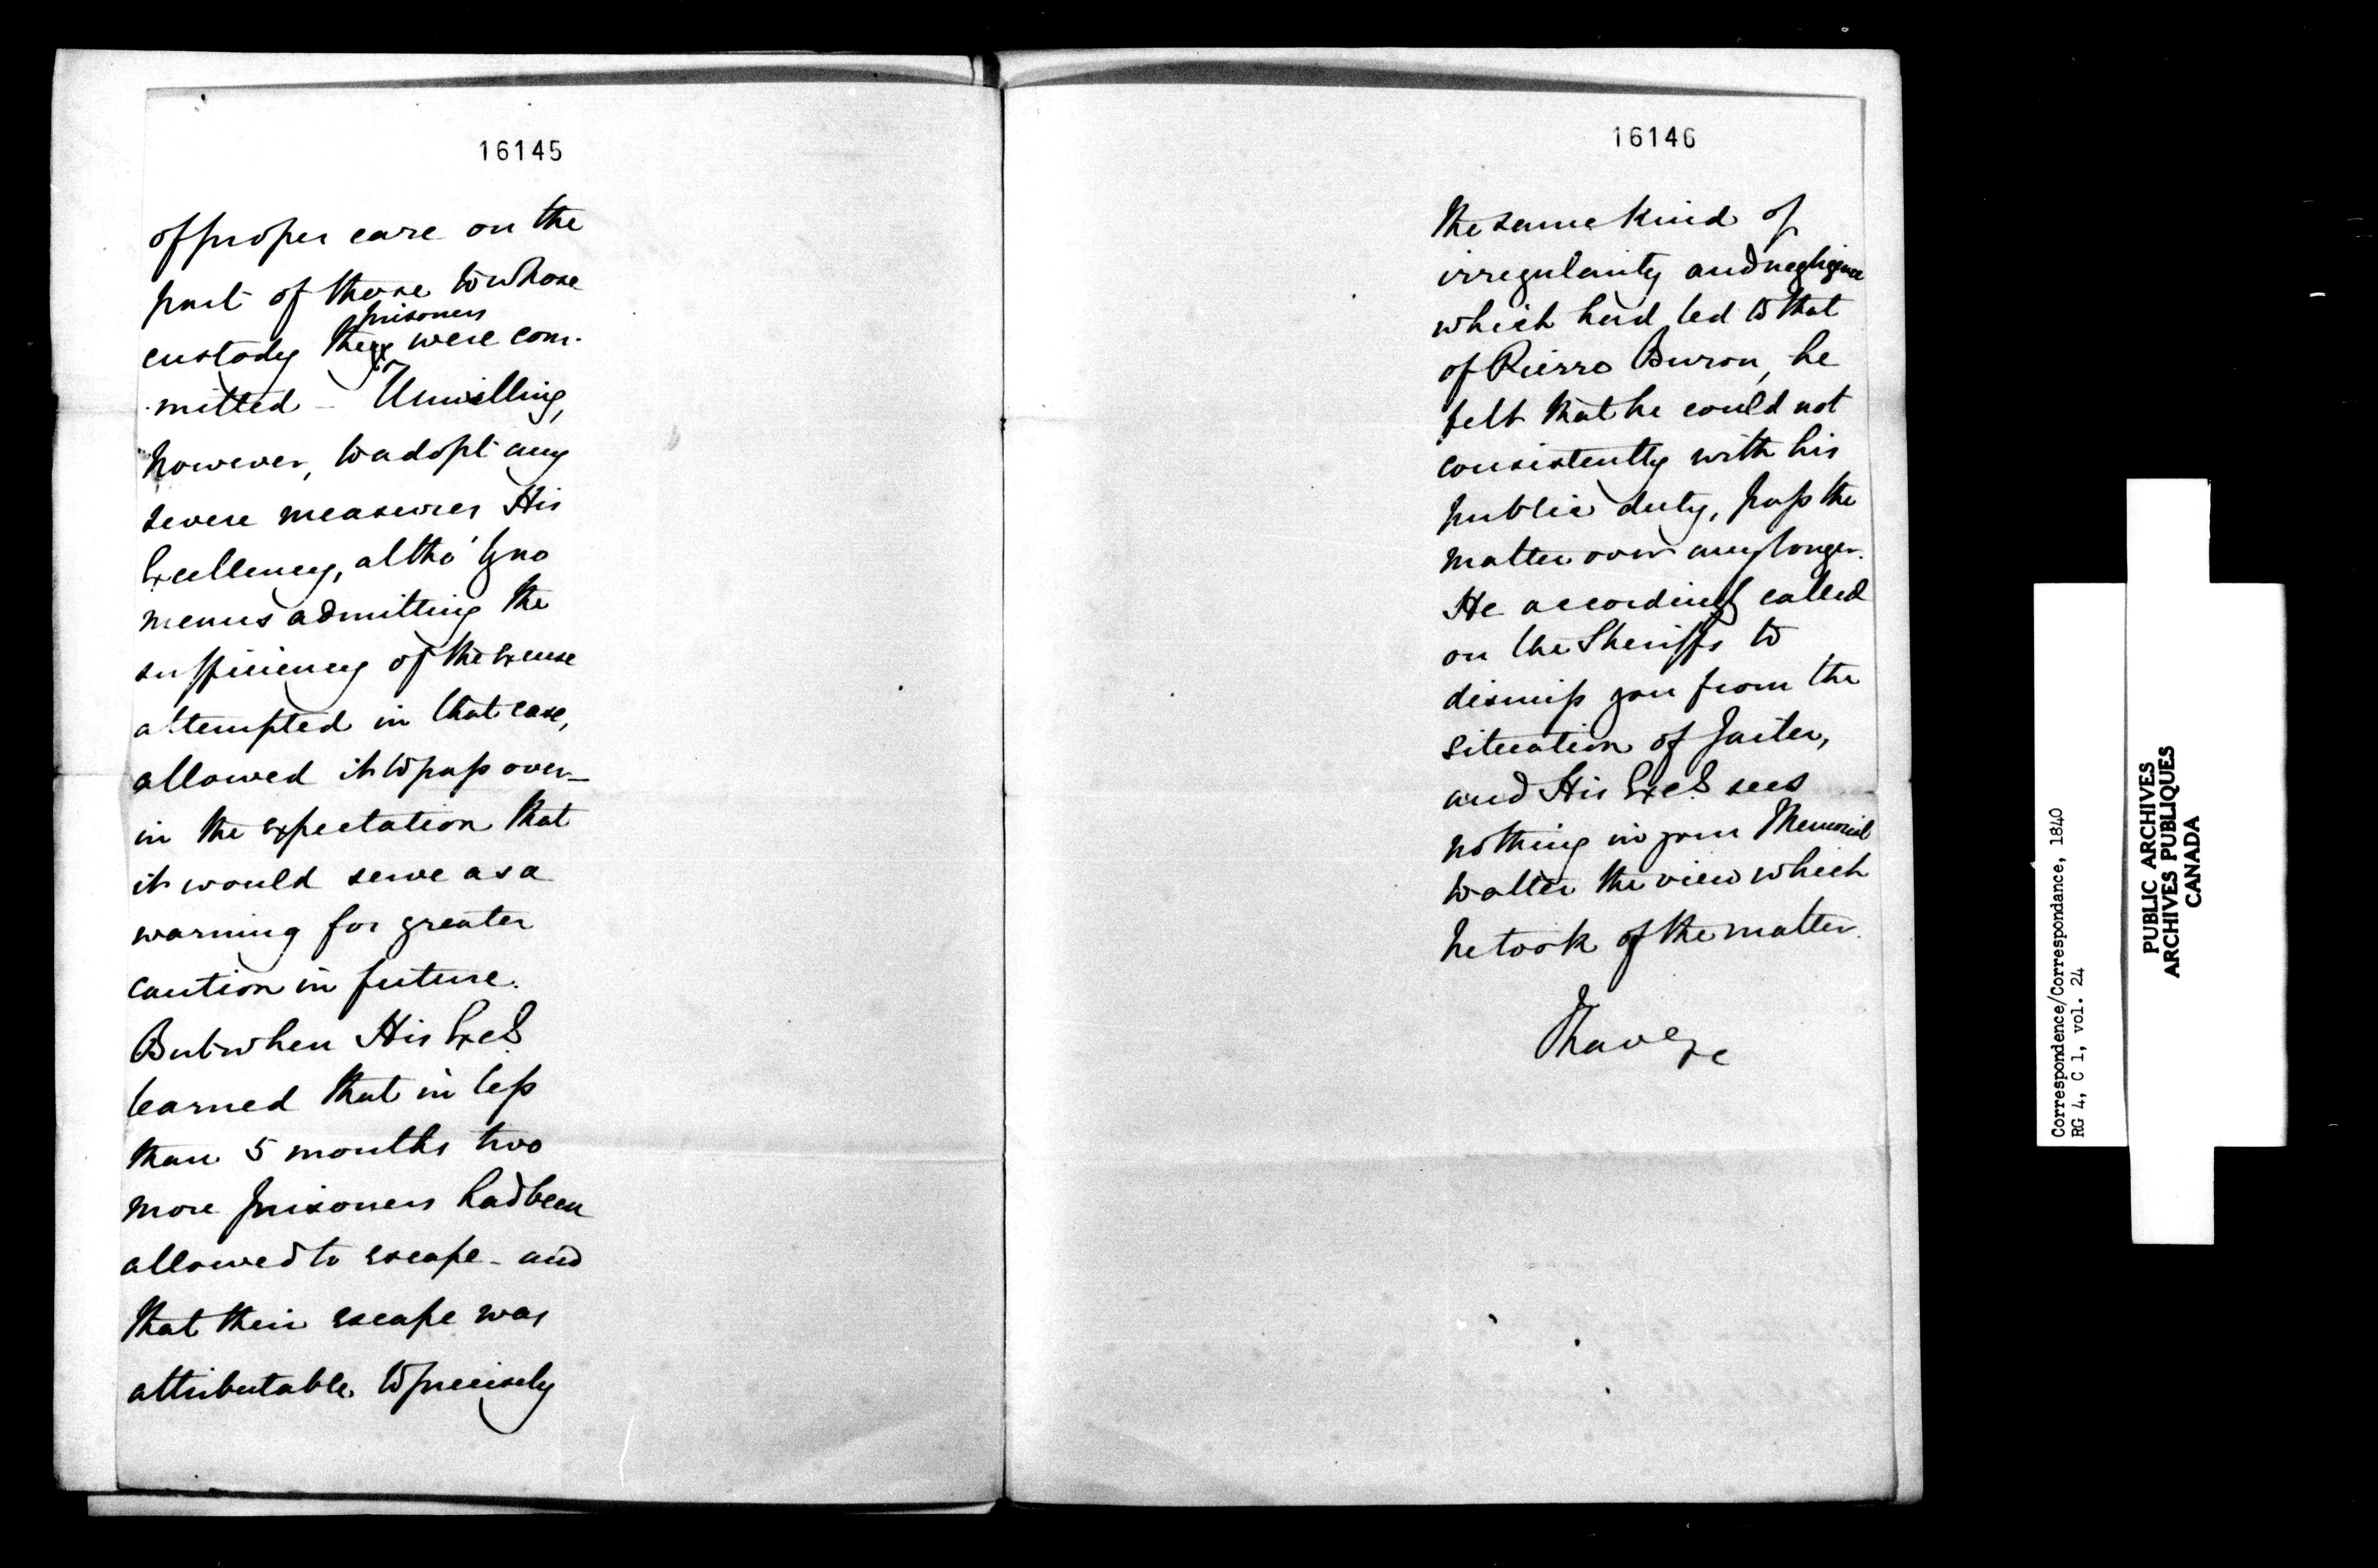 16145
of proper care on the
part of those to whose
prisoners
custody they were com-
mitted - Unwilling,
however, to adopt any
severe measures His
Excellency, altho' by no
means admitting the
sufficiency of the excuse
attempted in that case,
allowed it to pass over -
in the expectation that
it would serve as a
warning for greater
caution in future.
But when His Excy
learned that in less
than 5 months two
more prisoners had been
allowed to escape - and
that their escape was
attributable to precisely
16146
the same kind of
irregularity and negligence
which had led to that
of Pierre Buron, he
felt that he could not
consistently with his
public duty, pass the
matter over any longer.
He accordingly called
on the Sheriffs to
dismiss you from the
situation of Jailer,
and His Excy sees
nothing in your Memorial
to alter the view which
he took of the matter.
I have &c
Correspondence/Correspondance, 1840
RG 4, C 1, vol. 24
PUBLIC ARCHIVES
ARCHIVES PUBLIQUES
CANADA